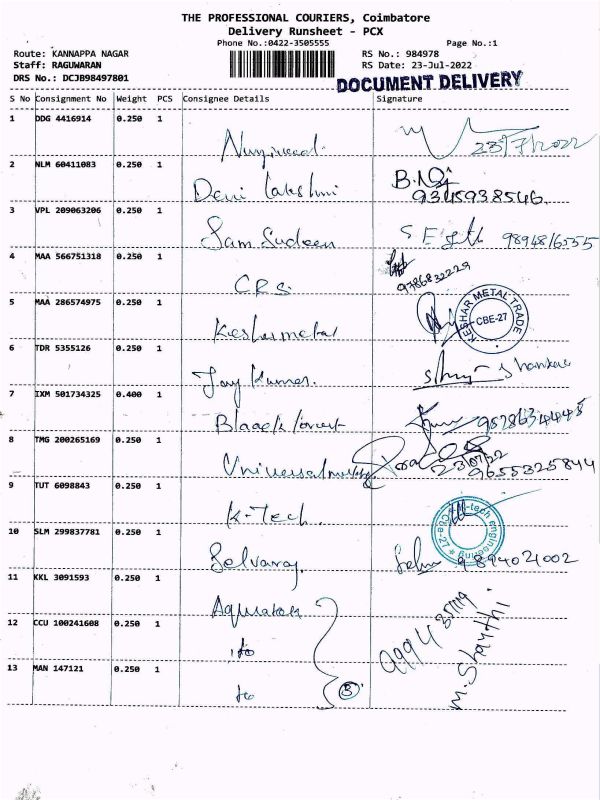 THE PROFESSIONAL COURIERS, Coimbatore
Delivery Runsheet - PCX
Phone No.:0422-3505555 Page No.:1
Route: KANNAPPA NAGAR RS No.: 984978
Staff: RAGUWARAN RS Date: 23-Jul-2022
DRS No.: DCJB98497801 DOCUMENT DELIVERY
S No Consignment No Weight PCS Consignee Details Signature
1 DDG 4416914 0.250 1
2 NLM 60411083 0.250 1
Devi Lakshmi 9345938546
3 VPL 209063206 0.250 1
Sam Sudeen
4 MAA 566751318 0.250 1
C.R.S. 9786832229
5 MAA 286574975 0.250 1
Keshermetal KESHAR METAL TRADE CBE-27
6 TDR 5355126 0.250 1
Jay Kumar.
7 IXM 501734325 0.400 1
8 TMG 200265169 0.250 1
9655325844
9 TUT 6098843 0.250 1
K-Tech
10 SLM 299837781 0.250 1
Selvaraj 9894021002
11 KKL 3091593 0.250 1
12 CCU 100241608 0.250 1
13 MAN 147121 0.250 1
3